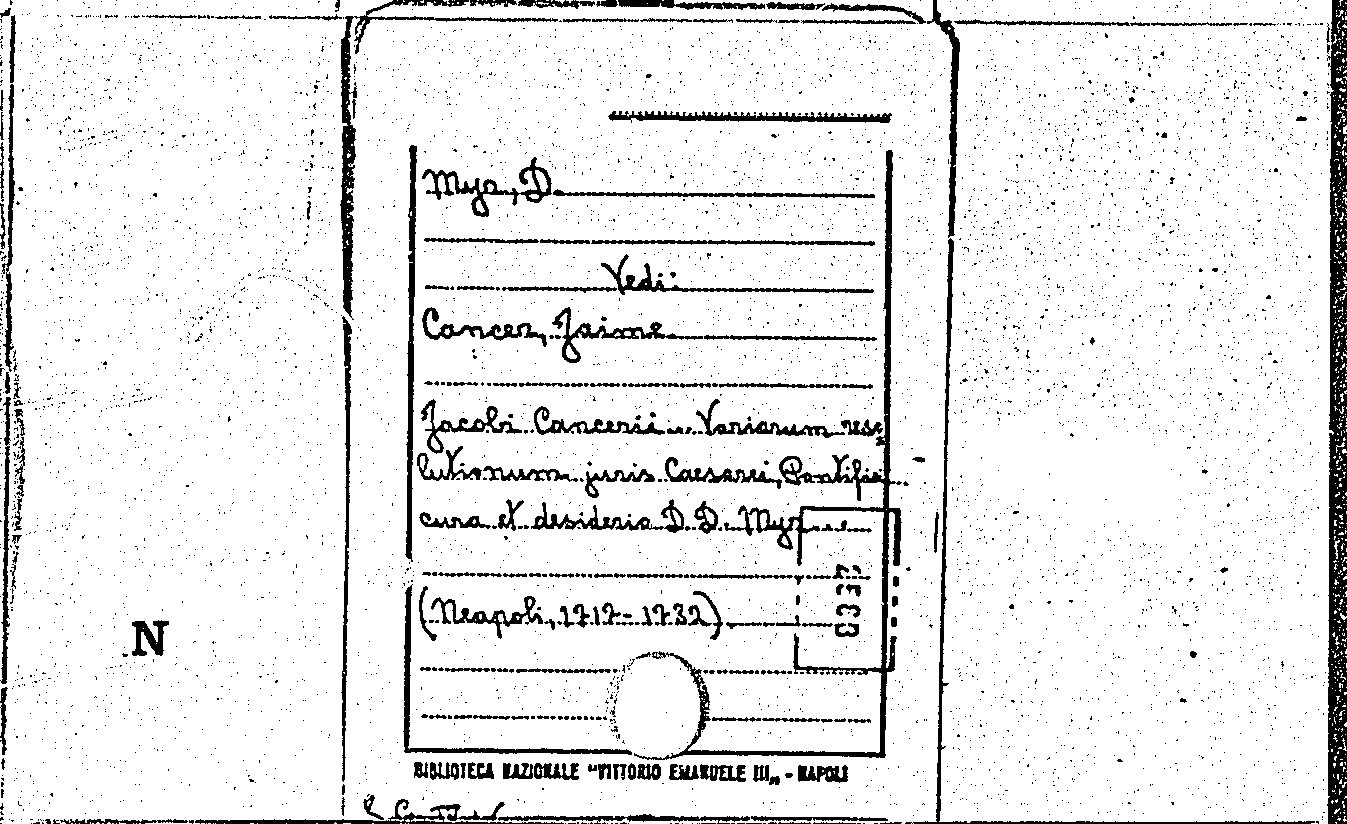 Myr, D.
Vedi:
Cancer, Jaime.
Jacobi Cancerii... Variarum reso
lutionum juris Caesarei, Pontifici
cura et desiderio D. D. Myr....
(Neapoli, 1717-1732).
N
BIBLIOTECA NAZIONALE "VITTORIO EMANUELE III„ - NAPOLI